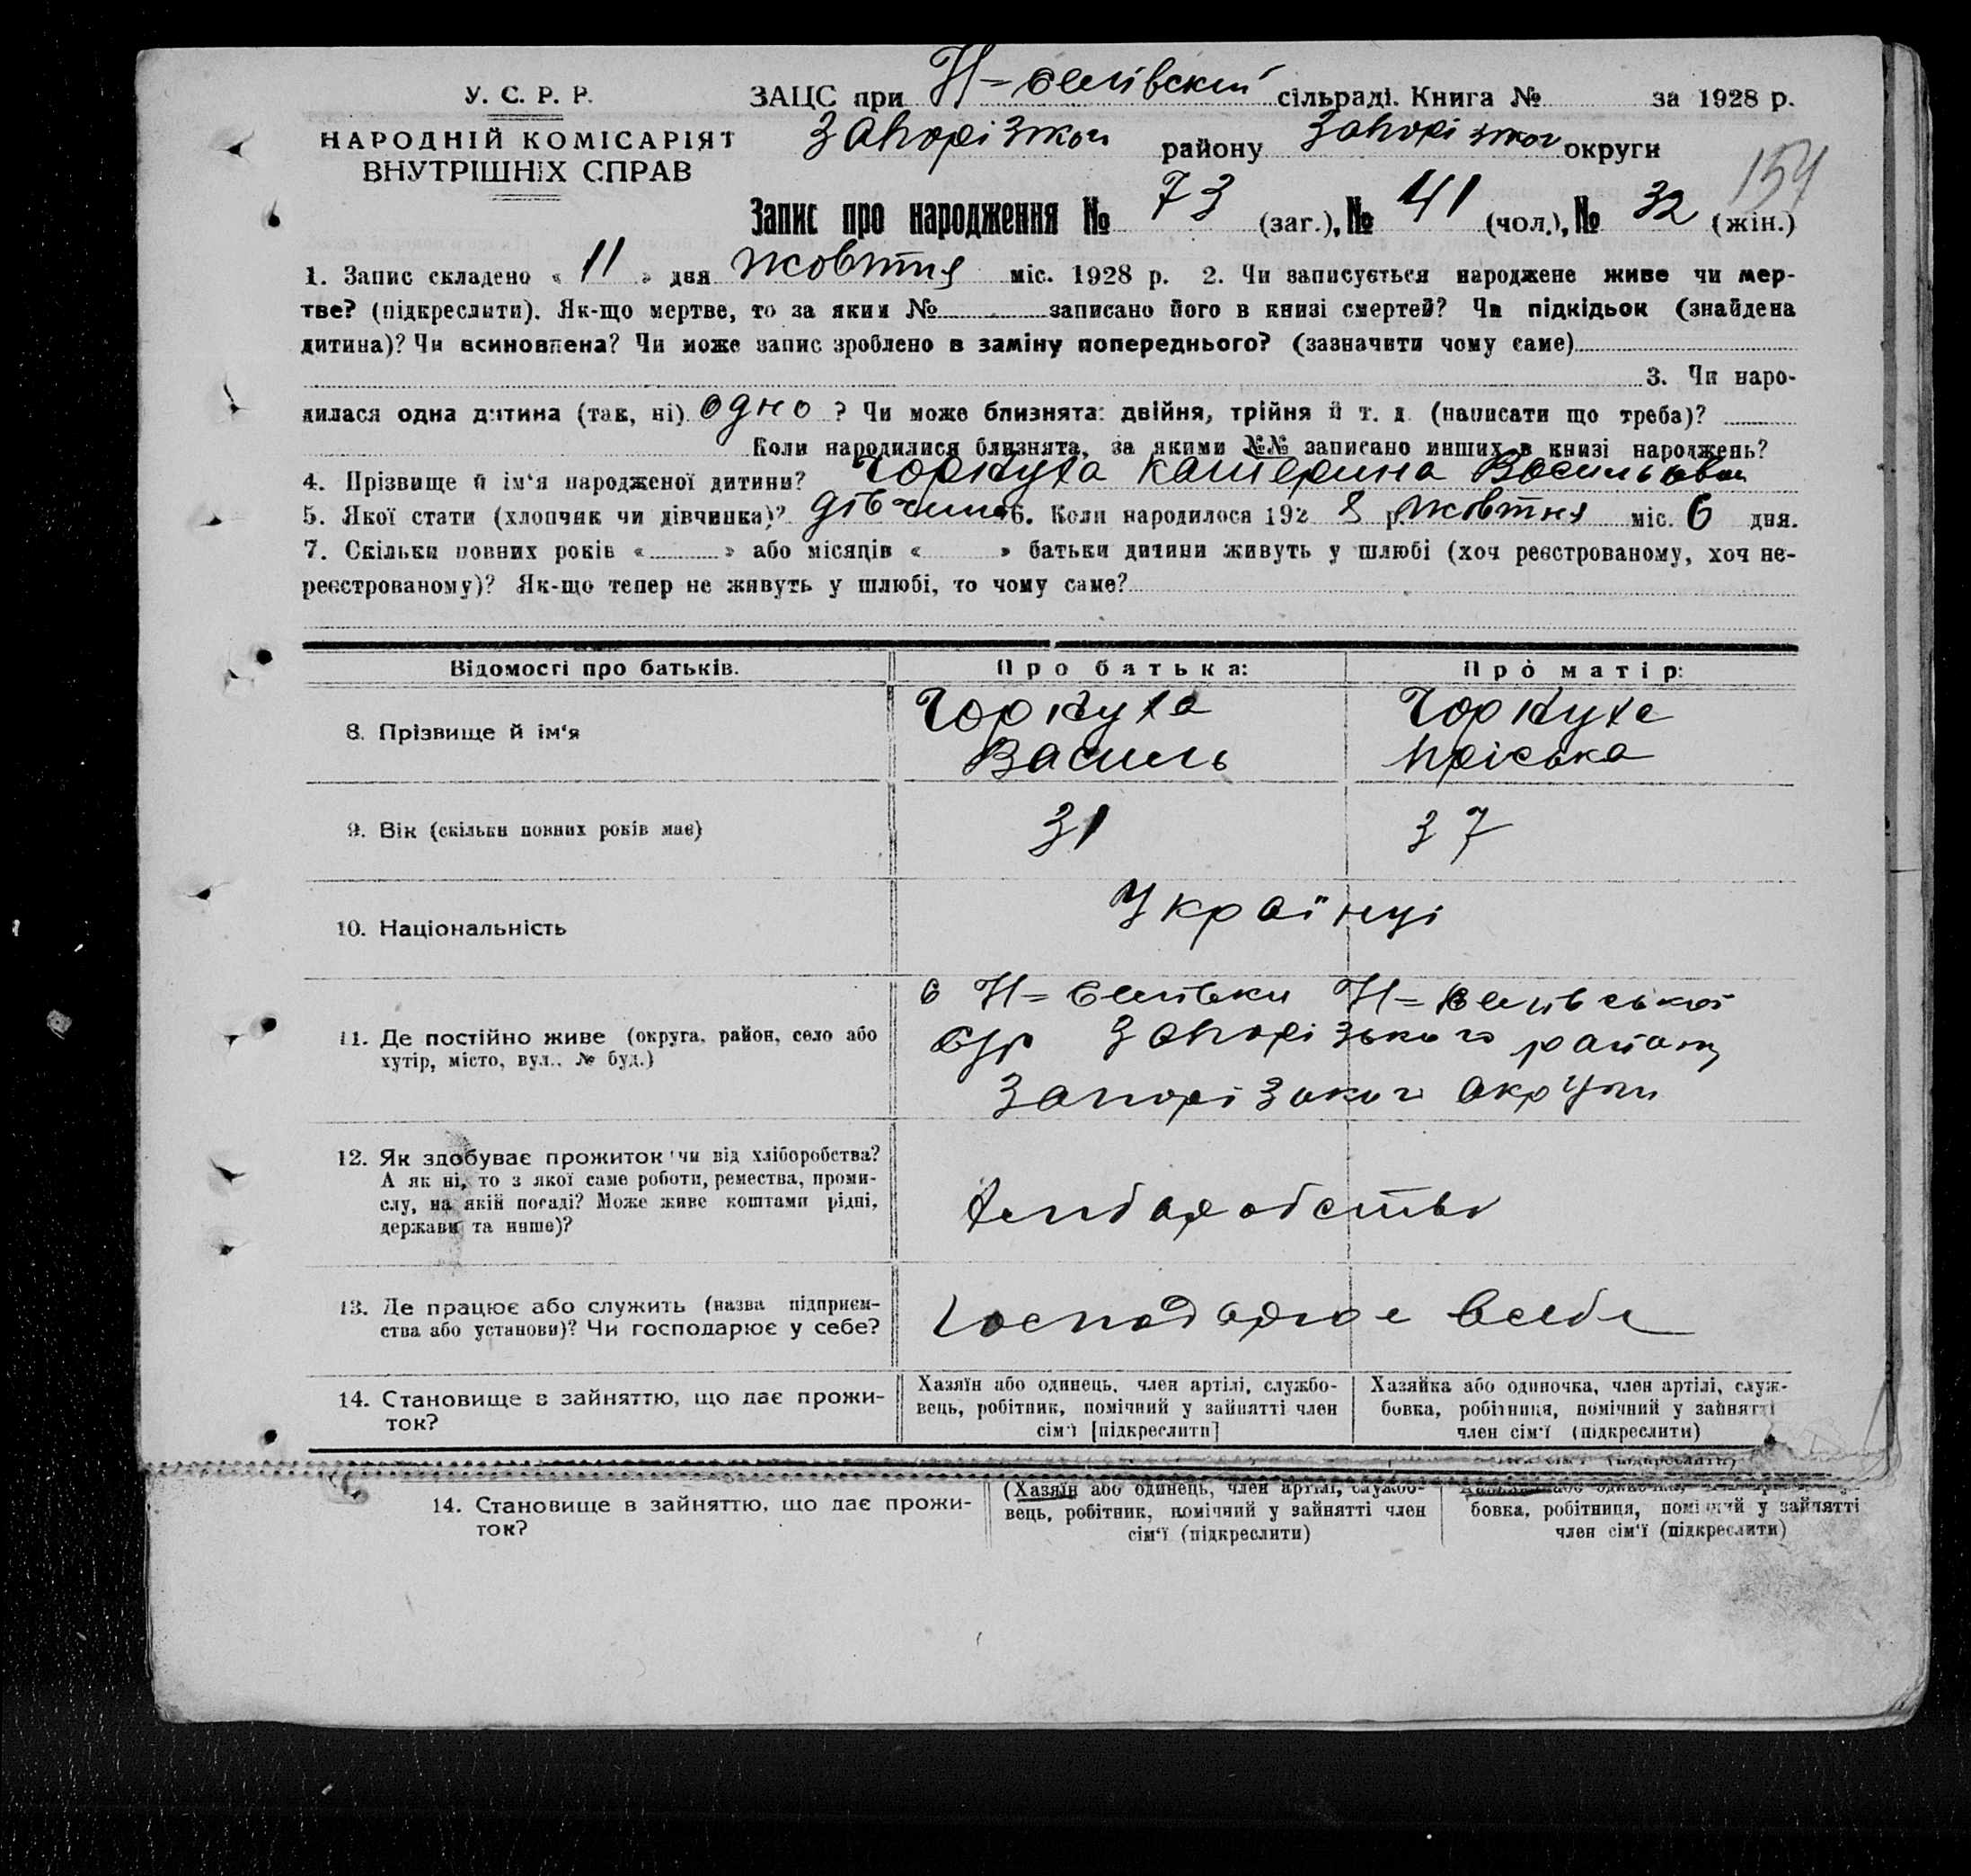 У. С. Р. Р.
НАРОДНІЙ КОМІСАРІЯТ
ВНУТРІШНІХ СПРАВ
ЗАЦС при Н= сільраді. Книга № за 1928 р.
району округи
154
Запис про народження № 73 (заг.), № 41 (чол.), № 32 (жін.)
1. Запис складено « 11 » дня жовтня міс. 1928 р. 2. Чи записується народжене живе чи мер-
тве? (підкреслити). Як-що мертве, то за яким № записано його в книзі смертей? Чи підкідьок (знайдена
дитина)? Чи всиновлена? Чи може запис зроблено в заміну попереднього? (зазначити чому саме)
3. Чи наро-
дилася одна дитина (так, ні) одно ? Чи може близнята: двійня, трійня й т. д. (написати що треба)?
Коли народилися близнята, за якими №№ записано инших в книзі народжень?
4. Прізвище й ім'я народженої дитини? Катерина
5. Якої стати (хлопчик чи дівчинка)? 6. Коли народилося 192 8 р. жовтня міс. 6 дня.
7. Скільки повних років « » або місяців « » батьки дитини живуть у шлюбі (хоч реєстрованому, хоч не-
реєстрованому)? Як-що тепер не живуть у шлюбі, то чому саме?
Відомості про батьків. Про батька: Про матір:
8. Прізвище й ім'я Василь Пріська
9. Вік (скільки повних років має) 31 37
10. Національність Українці
11. Де постійно живе (округа, район, село або
хутір, місто, вул., № буд.)
Запорізького району
Запорізького округи
12. Як здобуває прожиток чи від хліборобства?
А як ні, то з якої саме роботи, ремества, проми-
слу, на якій посаді? Може живе коштами рідні,
держави та инше)?
хліборобство
13. Де працює або служить (назва підприєм-
ства або установи)? Чи господарює у себе?
господарює в себе
14. Становище в зайняттю, що дає прожи-
ток?
Хазяїн або одинець, член артілі, службо-
вець, робітник, помічний у зайнятті член
сім'ї [підкреслити]
Хазяйка або одиночка, член артілі, служ-
бовка, робітниця, помічний у зайнятті
член сім'ї (підкреслити)
14. Становище в зайняттю, що дає прожи-
ток?
(Хазяїн або одинець, член артілі, службо-
вець, робітник, помічний у зайнятті член
сім'ї (підкреслити)
бовка, робітниця, помічний у зайнятті
член сім'ї (підкреслити)